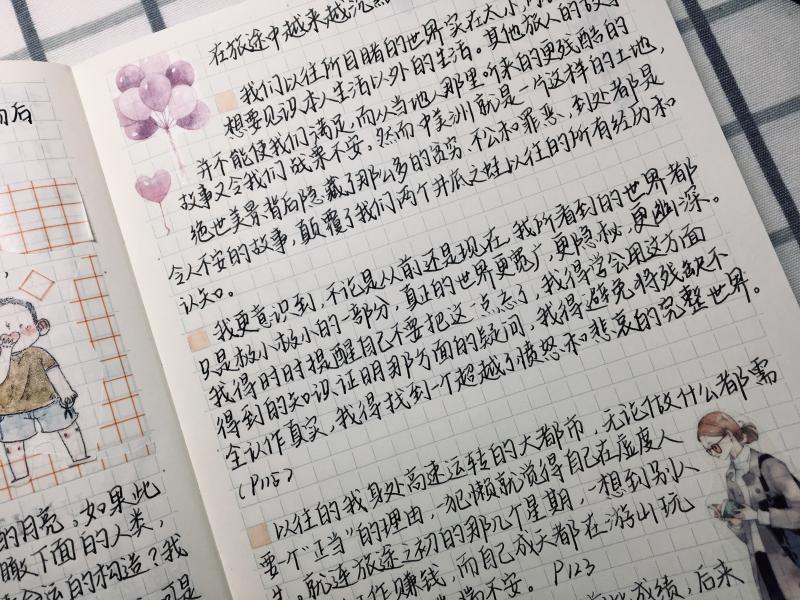 切后
的月亮。如果此
瞰下面的人类,
命运的构造?我
在旅途中越来越沉
我们以往所目睹的世界实在太小
想要见识本人生活以外的生活。其他旅人的故事
并不能使我们满足,而从当地人那里听来的更残酷的
故事又令我们战栗不安。然而中美洲就是一片这样的土地,
绝世美景背后隐藏了那么多的贫穷、不公和罪恶,到处都是
令人不安的故事,颠覆了我们两个井底之蛙以往的所有经历和
认知。
我更意识到,不论是从前还是现在,我所看到的世界都
只是极小极小的一部分,真正的世界更宽广,更隐秘,更幽深。
我得时时提醒自己不要把这一点忘了,我得学会用这方面
得到的知识,证明那方面的疑问,我得避免将残缺不
全认作真实,我得找到一个超越了愤怒和悲哀的完整世界。
(P115)
以往的我身处高速运转的大都市,无论做什么都需
要一个"正当"的理由,一犯懒就觉得自己在虚度人
生。就连旅途之初的那几个星期,一想到别人
作赚钱,而自己成天都在游山玩
不安。 P123
成绩,后来